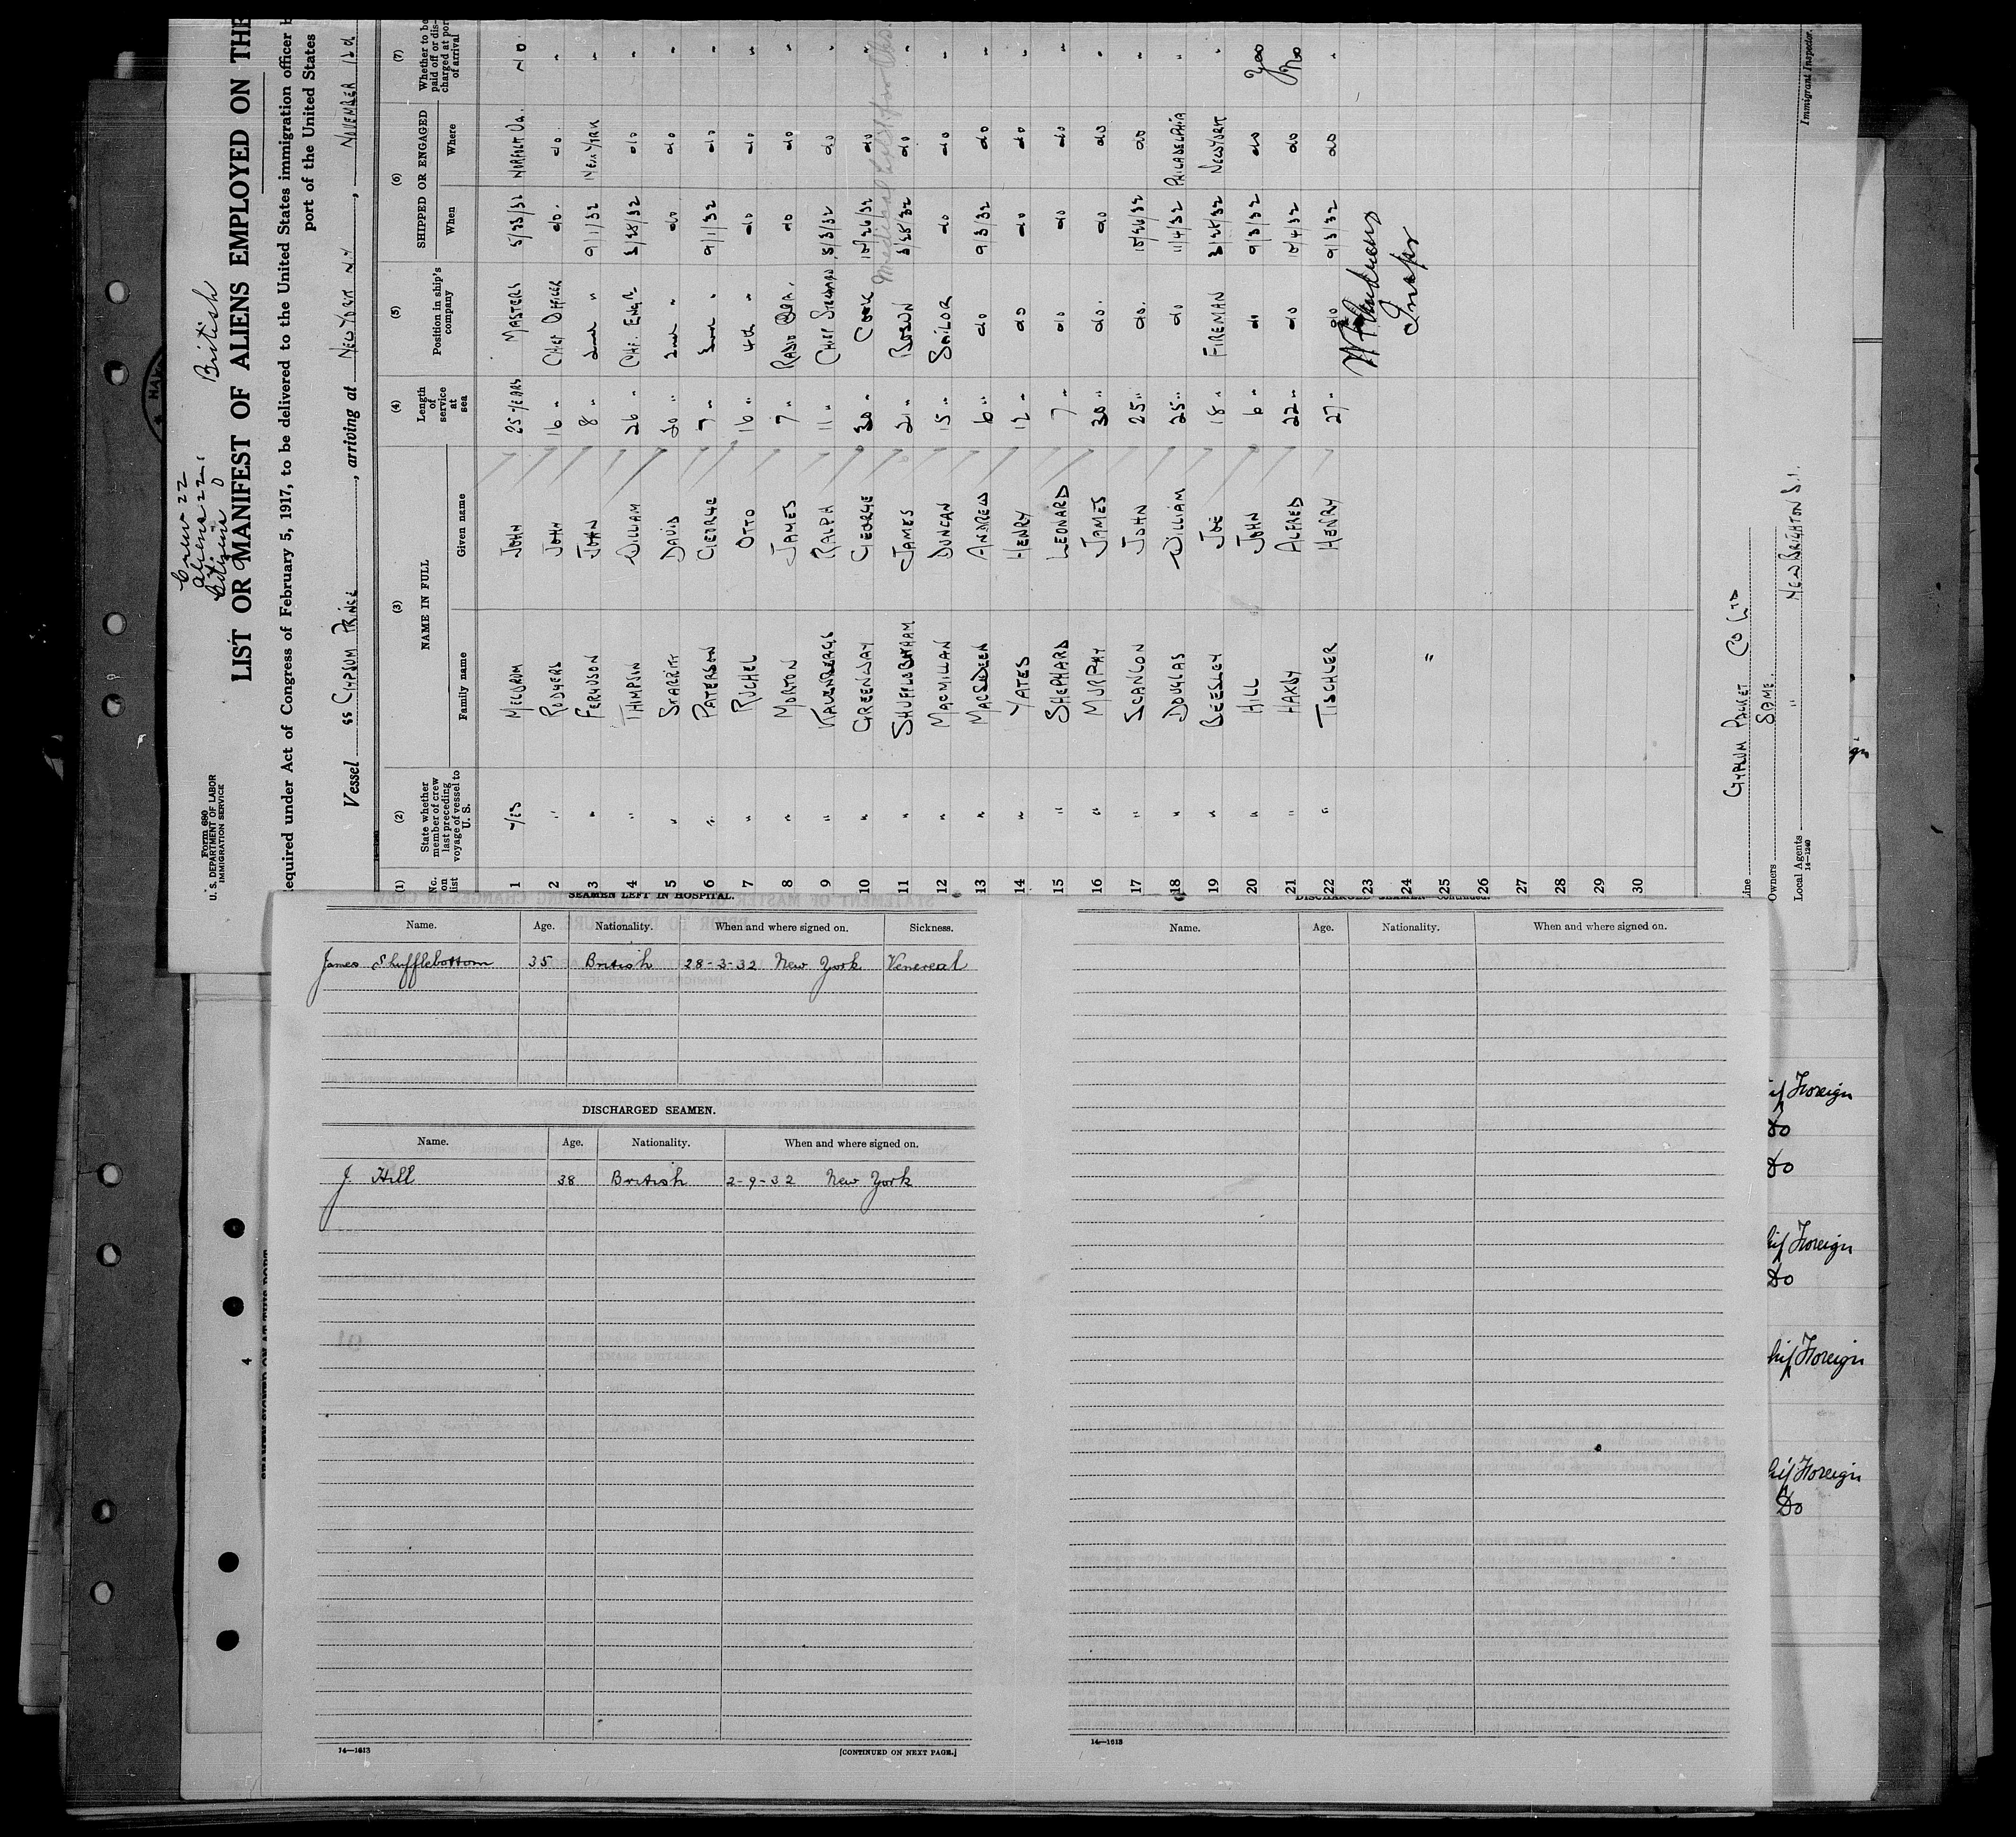 Crew 22
Aliens 22
Citizens 0
British
Form 680
U. S. DEPARTMENT OF LABOR
IMMIGRATION SERVICE
LIST OR MANIFEST OF ALIENS EMPLOYED ON THE
Required under Act of Congress of February 5, 1917, to be delivered to the United States immigration officer
port of the United States
Vessel SS GYPSUM PRINCE, arriving at NEW YORK N.Y, NOVEMBER 12th
(1) (2) (3) (4) (5) (6) (7)
No. on list State whether member of crew last preceding voyage of vessel to U. S. NAME IN FULL Length of service at sea Position in ship's company SHIPPED OR ENGAGED Whether to be paid off or discharged at port of arrival
Family name Given name When Where
1 YES JOHN 25 YEARS MASTERS 5/23/32 NORFOLK VA. NO
2 " RODGERS JOHN 16 " CHIEF OFFICER do. do. "
3 " FERGUSON JOHN 8 " 2nd " 9/1/32 NEW YORK "
4 " THIMPSON WILLIAM 26 " CHF. ENGR 3/28/32 do "
5 " STARRITT DAVID 20 " 2nd " do do "
6 " PATERSON GEORGE 7 " 3rd " 9/1/32 do "
7 " RUCHEL OTTO 16 " 4th " do do "
8 " MORTON JAMES 7 " RADIO OPR. do do "
9 " RALPH 11 " CHIEF STEWARD 5/3/32 do "
10 " GREENWAY GEORGE 30 " COOK 10/26/32 do "
11 " JAMES 2 " BOSUN 3/28/32 do "
12 " MACMILLAN DUNCAN 15 " SAILOR do do "
13 " ANDREW 6 " do 9/3/32 do "
14 " YATES HENRY 12 " do do do "
15 " SHEPHARD LEONARD 7 " do do do "
16 " MURPHY JAMES 30 " do. do do "
17 " SCANLON JOHN 25 " do. 10/26/32 do "
18 " DOUGLAS WILLIAM 25 " do 11/4/32 PHILADELPHIA "
19 " BEESLEY JOE 18 " FIREMAN 3/28/32 NEW YORK "
20 " HILL JOHN 6 " do 9/3/32 do Yes
21 " HAXBY ALFRED 22 " do 10/4/32 do No
22 " TISCHLER HENRY 27 " do 9/3/32 do "
23
24
25 "
26
27
28
29
30
Line GYPSUM PACKET CO LTD
Owners SAME
Local Agents " NEW BRIGHTON S.I.
14—1240
Immigrant Inspector.
SEAMEN LEFT IN HOSPITAL
Name. Age. Nationality. When and where signed on. Sickness.
James Shufflebottom 35 British 28-3-32 New York Venereal
DISCHARGED SEAMEN.
Name. Age. Nationality. When and where signed on.
J. Hill 38 British 2-9-32 New York
14—1613
[CONTINUED ON NEXT PAGE.]
DISCHARGED SEAMEN—Continued.
Name. Age. Nationality. When and where signed on.
14—1613
4
Foreign
do
do
Foreign
do
Foreign
Foreign
Do